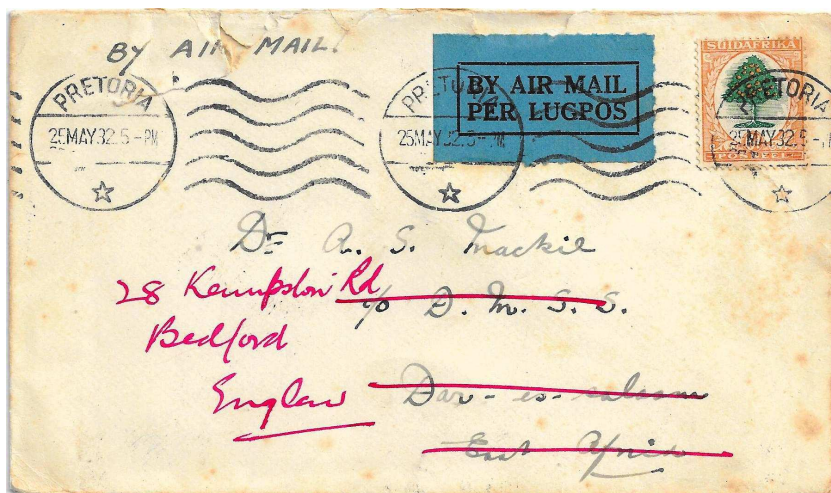 BY AIR MAIL.
PRETORIA
25MAY32.5-PM
PRETORIA
25MAY32.5-PM
BY AIR MAIL
PER LUGPOS
SUIDAFRIKA
PRETORIA
25MAY32.5-PM
Dr A. S. Mackie
28 Kempston Rd
c/o D. M. S. S.
Bedford
England
Dar-es-salaam
East Africa